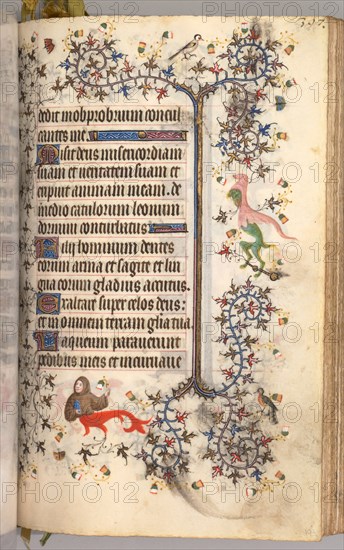 dedit in obprobrium concul
cantes me.
Misit deus misericordiam
suam et veritatem suam et
eripuit animam meam. de
medio catulorum leonum
dormivi conturbatus
Filii hominum dentes
eorum arma et sagitte et lin
gua eorum gladius acutus.
Exaltare super celos deus:
et in omnem terram gloria tua.
Laqueum paraverunt
pedibus meis et incurvave